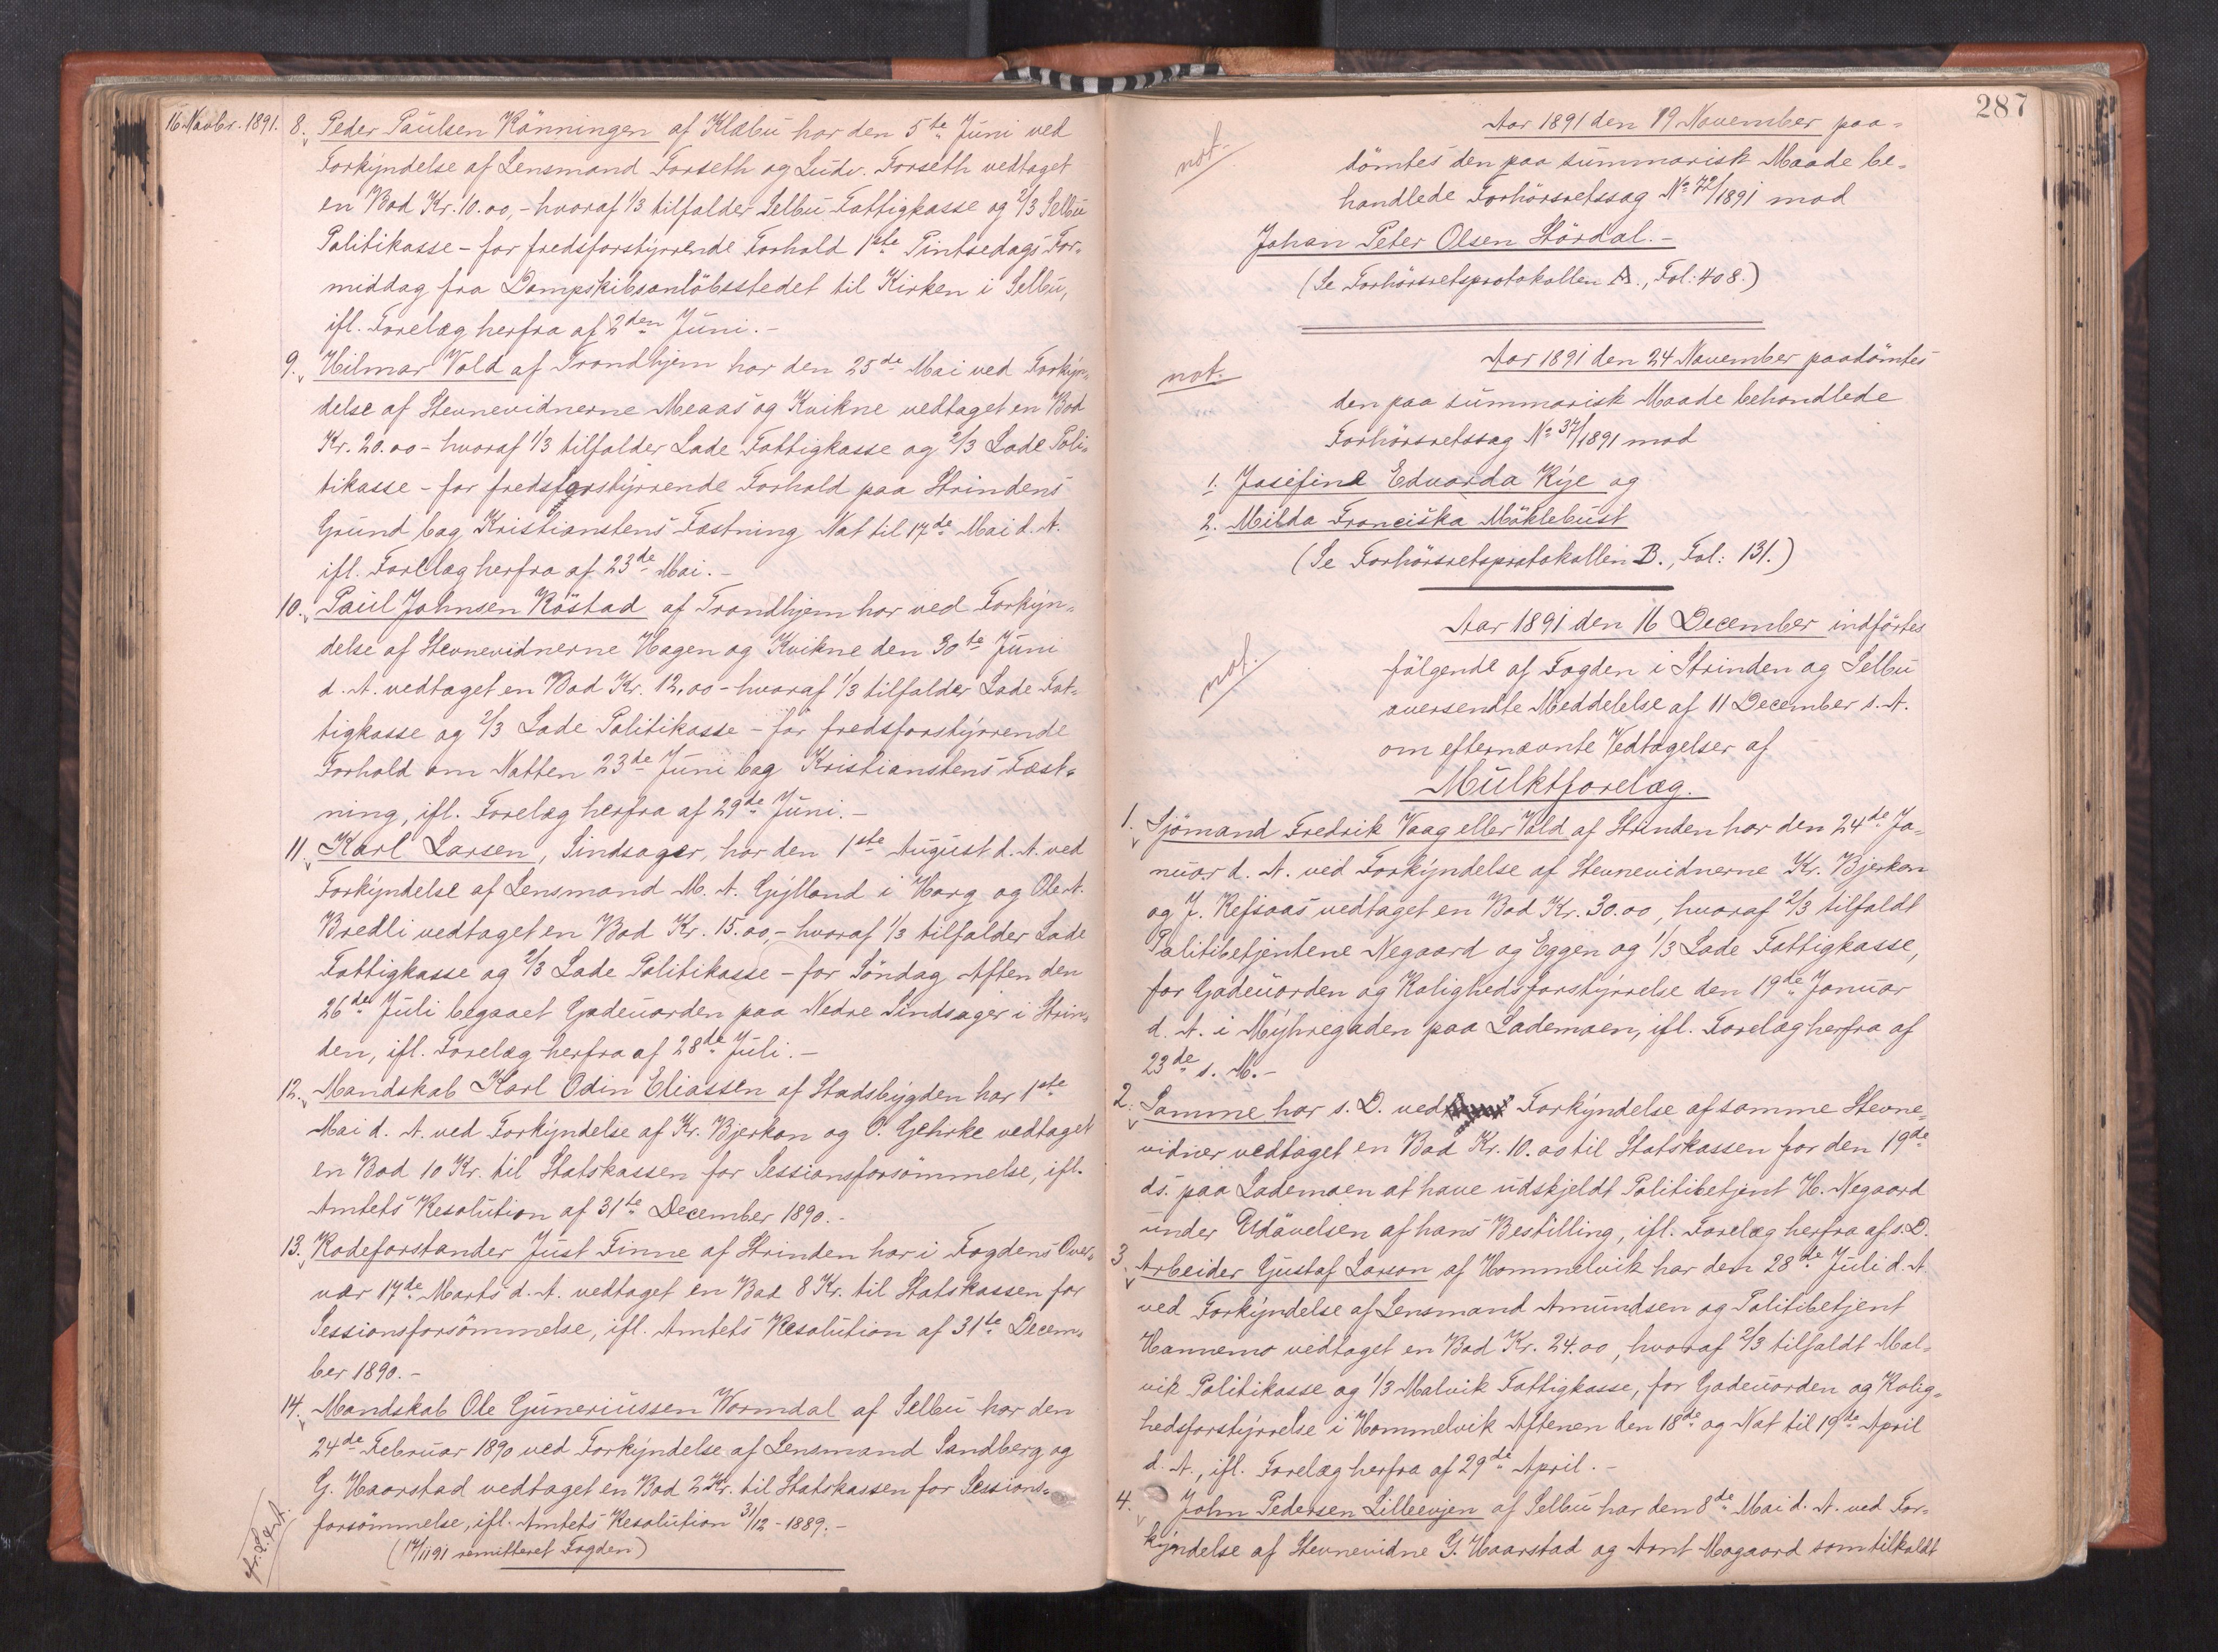 16 Novbr. 1891.
8. Peder Paulsen Rönningen af Klæbu har den 5te Juni ved
Forkyndelse af Lensmand Forseth og Ludv. Forseth vedtaget
en Bod Kr. 10.00,- hvoraf 1/3 tilfalder Selbu Fattigkasse og 2/3 Selbu
Politikasse - for fredsforstyrrende Forhold 1ste Pintsedags For-
middag fra Dampskibsanlöbsstedet til Kirken i Selbu,
ifl. Forelæg herfra af 2den Juni.-
9. Hilmar Vold af Trondhjem har den 25de Mai ved Forkyn-
delse af Stevnevidnerne Meaas og Kvikne vedtaget en Bod
Kr. 20.00 - hvoraf 1/3 tilfalder Lade Fattigkasse og 2/3 Lade Poli-
tikasse - for fredsforstyrrende Forhold paa Strindens
Grund bag Kristianstens Fæstning Nat til 17de Mai d. A.
ifl. Forelæg herfra af 23de Mai.-
10. Paul Johnsen Röstad af Trondhjem har ved Forkyn-
delse af Stevnevidnerne Hagen og Kvikne den 30te Juni
d. A. vedtaget en Bod Kr. 12,00 - hvoraf 1/3 tilfalder Lade Fat-
tigkasse og 2/3 Lade Politikasse - for fredsforstyrrende
Forhold om Natten 23de Juni bag Kristianstens Fæst-
ning, ifl. Forelæg herfra af 29de Juni.-
11. Karl Larsen, Sindsager, har den 1ste August d. A. ved
Forkyndelse af Lensmand M. A. Gylland i Horg og Ole A.
Bredli vedtaget en Bod Kr. 15.00,- hvoraf 1/3 tilfalder Lade
Fattigkasse og 2/3 Lade Politikasse - for Söndag Aften den
26de Juli begaaet Gadeuorden paa Nedre Sindsager i Strin-
den, ifl. Forelæg herfra af 28de Juli.-
12. Mandskab Karl Odin Eliassen af Stadsbygden har 1ste
Mai d. A. ved Forkyndelse af Kr. Bjerkan og O. Gehrke vedtaget
en Bod 10 Kr. til Statskassen for Sessionsforsömmelse, ifl.
Amtets Resolution af 31te December 1890.-
13. Rodeforstander Just Finne af Strinden har i Fogdens Over-
vær 17de Marts d. A. vedtaget en Bod 8 Kr. til Statskassen for
Sessionsforsömmelse, ifl. Amtets Resolution af 31te Decem-
ber 1890.-
14. Mandskab Ole Guneriussen Wormdal af Selbu har den
24de Februar 1890 ved Forkyndelse af Lensmand Sandberg og
G. Haarstad vedtaget en Bod 2 Kr. til Statskassen for Sessions-
forsömmelse, ifl. Amtets Resolution 31/12 - 1889.-
(17/11 91 remitteret Fogden)
287
not.
Aar 1891 den 19 November paa-
dömtes den paa summarisk Maade be-
handlede Forhörsretssag No 72/1891 mod
Johan Peter Olsen Stördal.-
(Se Forhörsretsprotokollen A., Fol: 408.)
not.
Aar 1891 den 24 November paadömtes
den paa summarisk Maade behandlede
Forhörsretssag No 37/1891 mod
1. Josefine Edvarda Rye og
2. Milda Franciska Möklebust
(Se Forhörsretsprotokollen B., Fol: 131.)
not.
Aar 1891 den 16 December indförtes
fölgende af Fogden i Strinden og Selbu
oversendte Meddelelse af 11 December s. A.
om efternævnte Vedtagelser af
Mulktforelæg.
1. Sjömand Fredrik Vaag eller Vold af Strinden har den 24de Ja-
nuar d. A. ved Forkyndelse af Stevnevidnerne Kr. Bjerkan
og J. Refsaas vedtaget en Bod Kr. 30.00, hvoraf 2/3 tilfaldt
Politibetjentene Negaard og Eggen og 1/3 Lade Fattigkasse,
for Gadeuorden og Rolighedsforstyrrelse den 19de Januar
d. A. i Myhregaden paa Lademoen, ifl. Forelæg herfra af
23de s. M.-
2. Samme har s. D. ved Forkyndelse af samme Stevne-
vidner vedtaget en Bod Kr. 10.00 til Statskassen for den 19de
ds. paa Lademoen at have udskjeldt Politibetjent H. Negaard
under Udövelsen af hans Bestilling, ifl. Forelæg herfra af s. D.
3. Arbeider Gustaf Larson af Hommelvik har den 28de Juli d. A.
ved Forkyndelse af Lensmand Amundsen og Politibetjent
Hannemo vedtaget en Bod Kr. 24.00, hvoraf 2/3 tilfaldt Mal-
vik Politikasse og 1/3 Malvik Fattigkasse, for Gadeuorden og Rolig-
hedsforstyrrelse i Hommelvik Aftenen den 18de og Nat til 19de April
d. A., ifl. Forelæg herfra af 29de April.-
4. John Pedersen Lilleevjen af Selbu har den 8de Mai d. A. ved For-
kyndelse af Stevnevidne G. Haarstad og Arnt Mogaard som tilkaldt